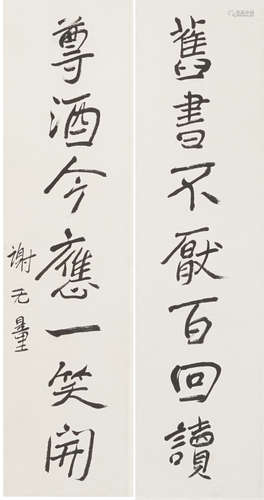 舊書不厭百回讀
尊酒今應一笑開
謝无量